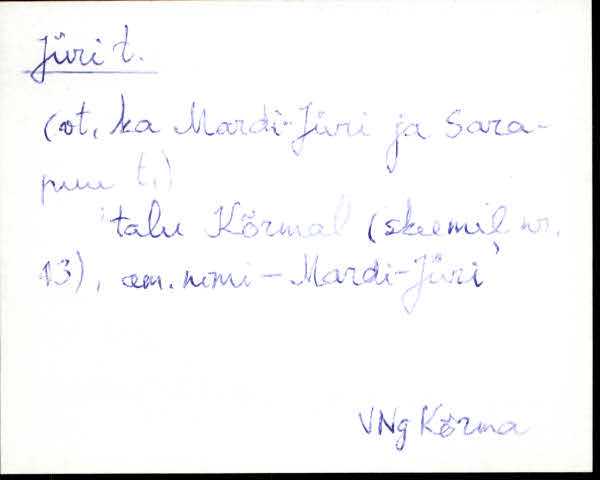 Jüri t.
(vt. ka Mardi-Jüri ja Sara-
puu t.)
talu Kõrmal (skeemil nr.
13), am. nimi - Mardi-Jüri
VNg Kõrma